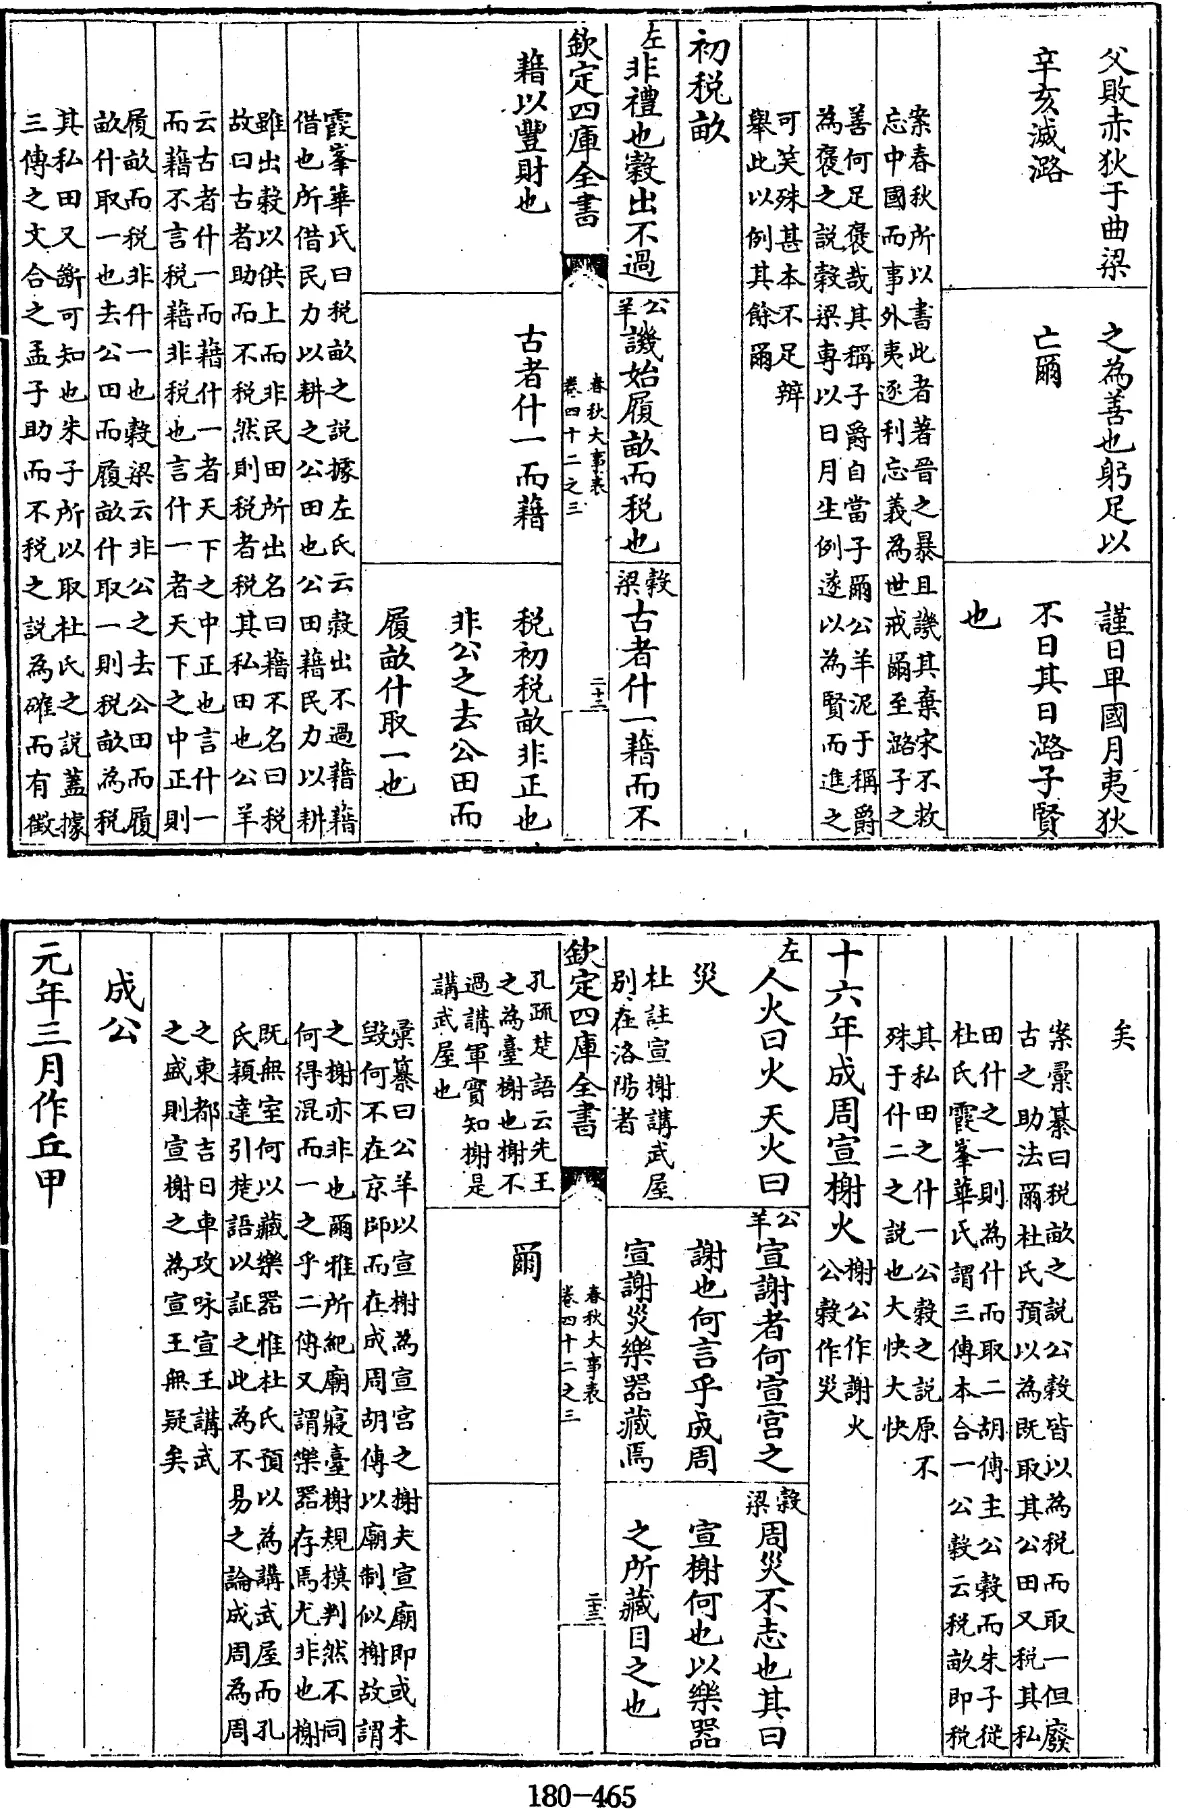 父敗赤狄于曲梁
辛亥滅潞
之為善也躬足以
亡爾
謹日甲國月夷狄
不日其日潞子賢
也
案春秋所以書此者著晉之暴且譏其棄宋不救
忘中國而事外夷逐利忘義為世戒爾至潞子之
善何足褒哉其稱子爵自當子爾公羊泥于稱爵
為褒之説穀梁專以日月生例遂以為賢而進之
可笑殊甚本不足辨
舉此以例其餘爾
初税畝
左非禮也穀出不過
藉以豐財也
公羊譏始履畝而税也
古者什一而藉
穀梁古者什一藉而不
税初税畝非正也
非公之去公田而
履畝什取一也
欽定四庫全書
春秋大事表
卷四十二之三
二十二
霞峯華氏曰税畝之説據左氏云穀出不過藉藉
借也所借民力以耕之公田也公田藉民力以耕
雖出穀以供上而非民田所出名曰藉不名曰税
故曰古者助而不税然則税者税其私田也公羊
云古者什一而藉什一者天下之中正也言什一
而藉不言税藉非税也言什一者天下之中正則
履畝而税非什一也穀梁云非公之去公田而履
畝什取一也去公田而履畝什取一則税畝為税
其私田又斷可知也朱子所以取杜氏之説蓋據
三傳之文合之孟子助而不税之説為確而有徵
矣
案彙纂曰税畝之説公穀皆以為税而取一但廢
古之助法爾杜氏預以為既取其公田又税其私
田什之一則為什而取二胡傳主公穀而朱子從
杜氏霞峯華氏謂三傳本合一公穀云税畝即税
其私田之什一公穀之説原不
殊于什二之説也大快大快
十六年成周宣榭火
榭公作謝火
公穀作災
左人火曰火天火曰
災
杜註宣榭講武屋
別在洛陽者
公羊宣謝者何宣宮之
謝也何言乎成周
宣謝災樂器藏焉
穀梁周災不志也其曰
宣榭何也以樂器
之所藏目之也
欽定四庫全書
春秋大事表
卷四十二之三
二十三
孔疏楚語云先王
之為臺榭也榭不
過講軍實知榭是
講武屋也
爾
彙纂曰公羊以宣榭為宣宮之榭夫宣廟即或未
毀何不在京師而在成周胡傳以廟制似榭故謂
之榭亦非也爾雅所紀廟寢臺榭規模判然不同
何得混而一之乎二傳又謂樂器存焉尤非也榭
既無室何以藏樂器惟杜氏預以為講武屋而孔
氏穎達引楚語以証之此為不易之論成周為周
之東都吉日車攻咏宣王講武
之盛則宣榭之為宣王無疑矣
成公
元年三月作丘甲
180-465